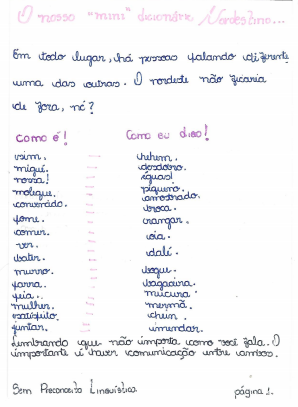 O nosso "mini" dicionário Nordestino...
Em todo lugar, há pessoas falando diferente
umas das outras. O nordeste não ficaria
de fora, né?
Como é! Como eu digo!
sim. hehem.
migué. desdobro.
nossa! éguas!
moleque. piqueno.
conversado. amostrado.
fome. broca.
comer. rangar.
ver. oia.
bater. dalé.
murro. bogue.
farra. bagaceira.
feia. mucura.
mulher. mermã.
chein.
juntar. imendar.
Lembrando que não importa como você fala. O
importante é haver comunicação entre ambos.
Sem Preconceito Linguístico. página 1.